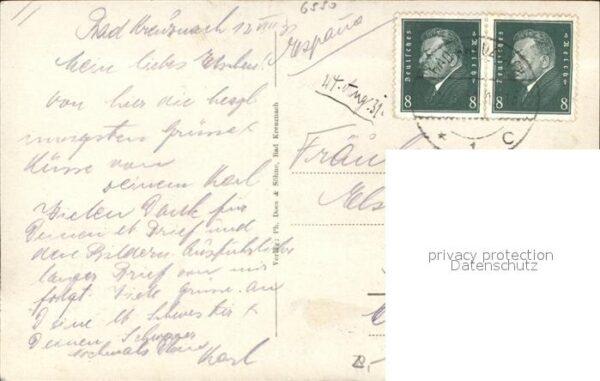 6550
Bad Kreuznach 12 VIII 31
España
Mein liebes Elschen!
von hier die herzl
innigsten Grüsse &
Küsse von
deinem Karl
24. Aug. 31.
Vielen Dank für
Deinen lb Brief und
den Bildern. Ausführlicher
langer Brief von mir
folgt. Viele Grüsse an
Deine lb Schwester &
Deinen Schwager
nochmals
Karl
Verlag: Ph. Doos & Söhne, Bad Kreuznach
Deutsches Reich
8 8
Deutsches Reich
8 8
* 1 C
Fräul
Els
privacy protection
Datenschutz